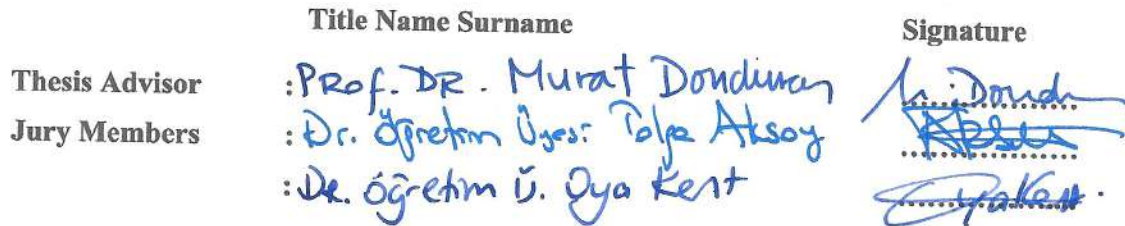 Title Name Surname Signature
Thesis Advisor :PROf. DR. Murat Donduran M. Dond
Jury Members : Dr. Öğretim Üyesi Tolga Aksoy
: DR. öğretim Ü. Oya Kent OyaKent